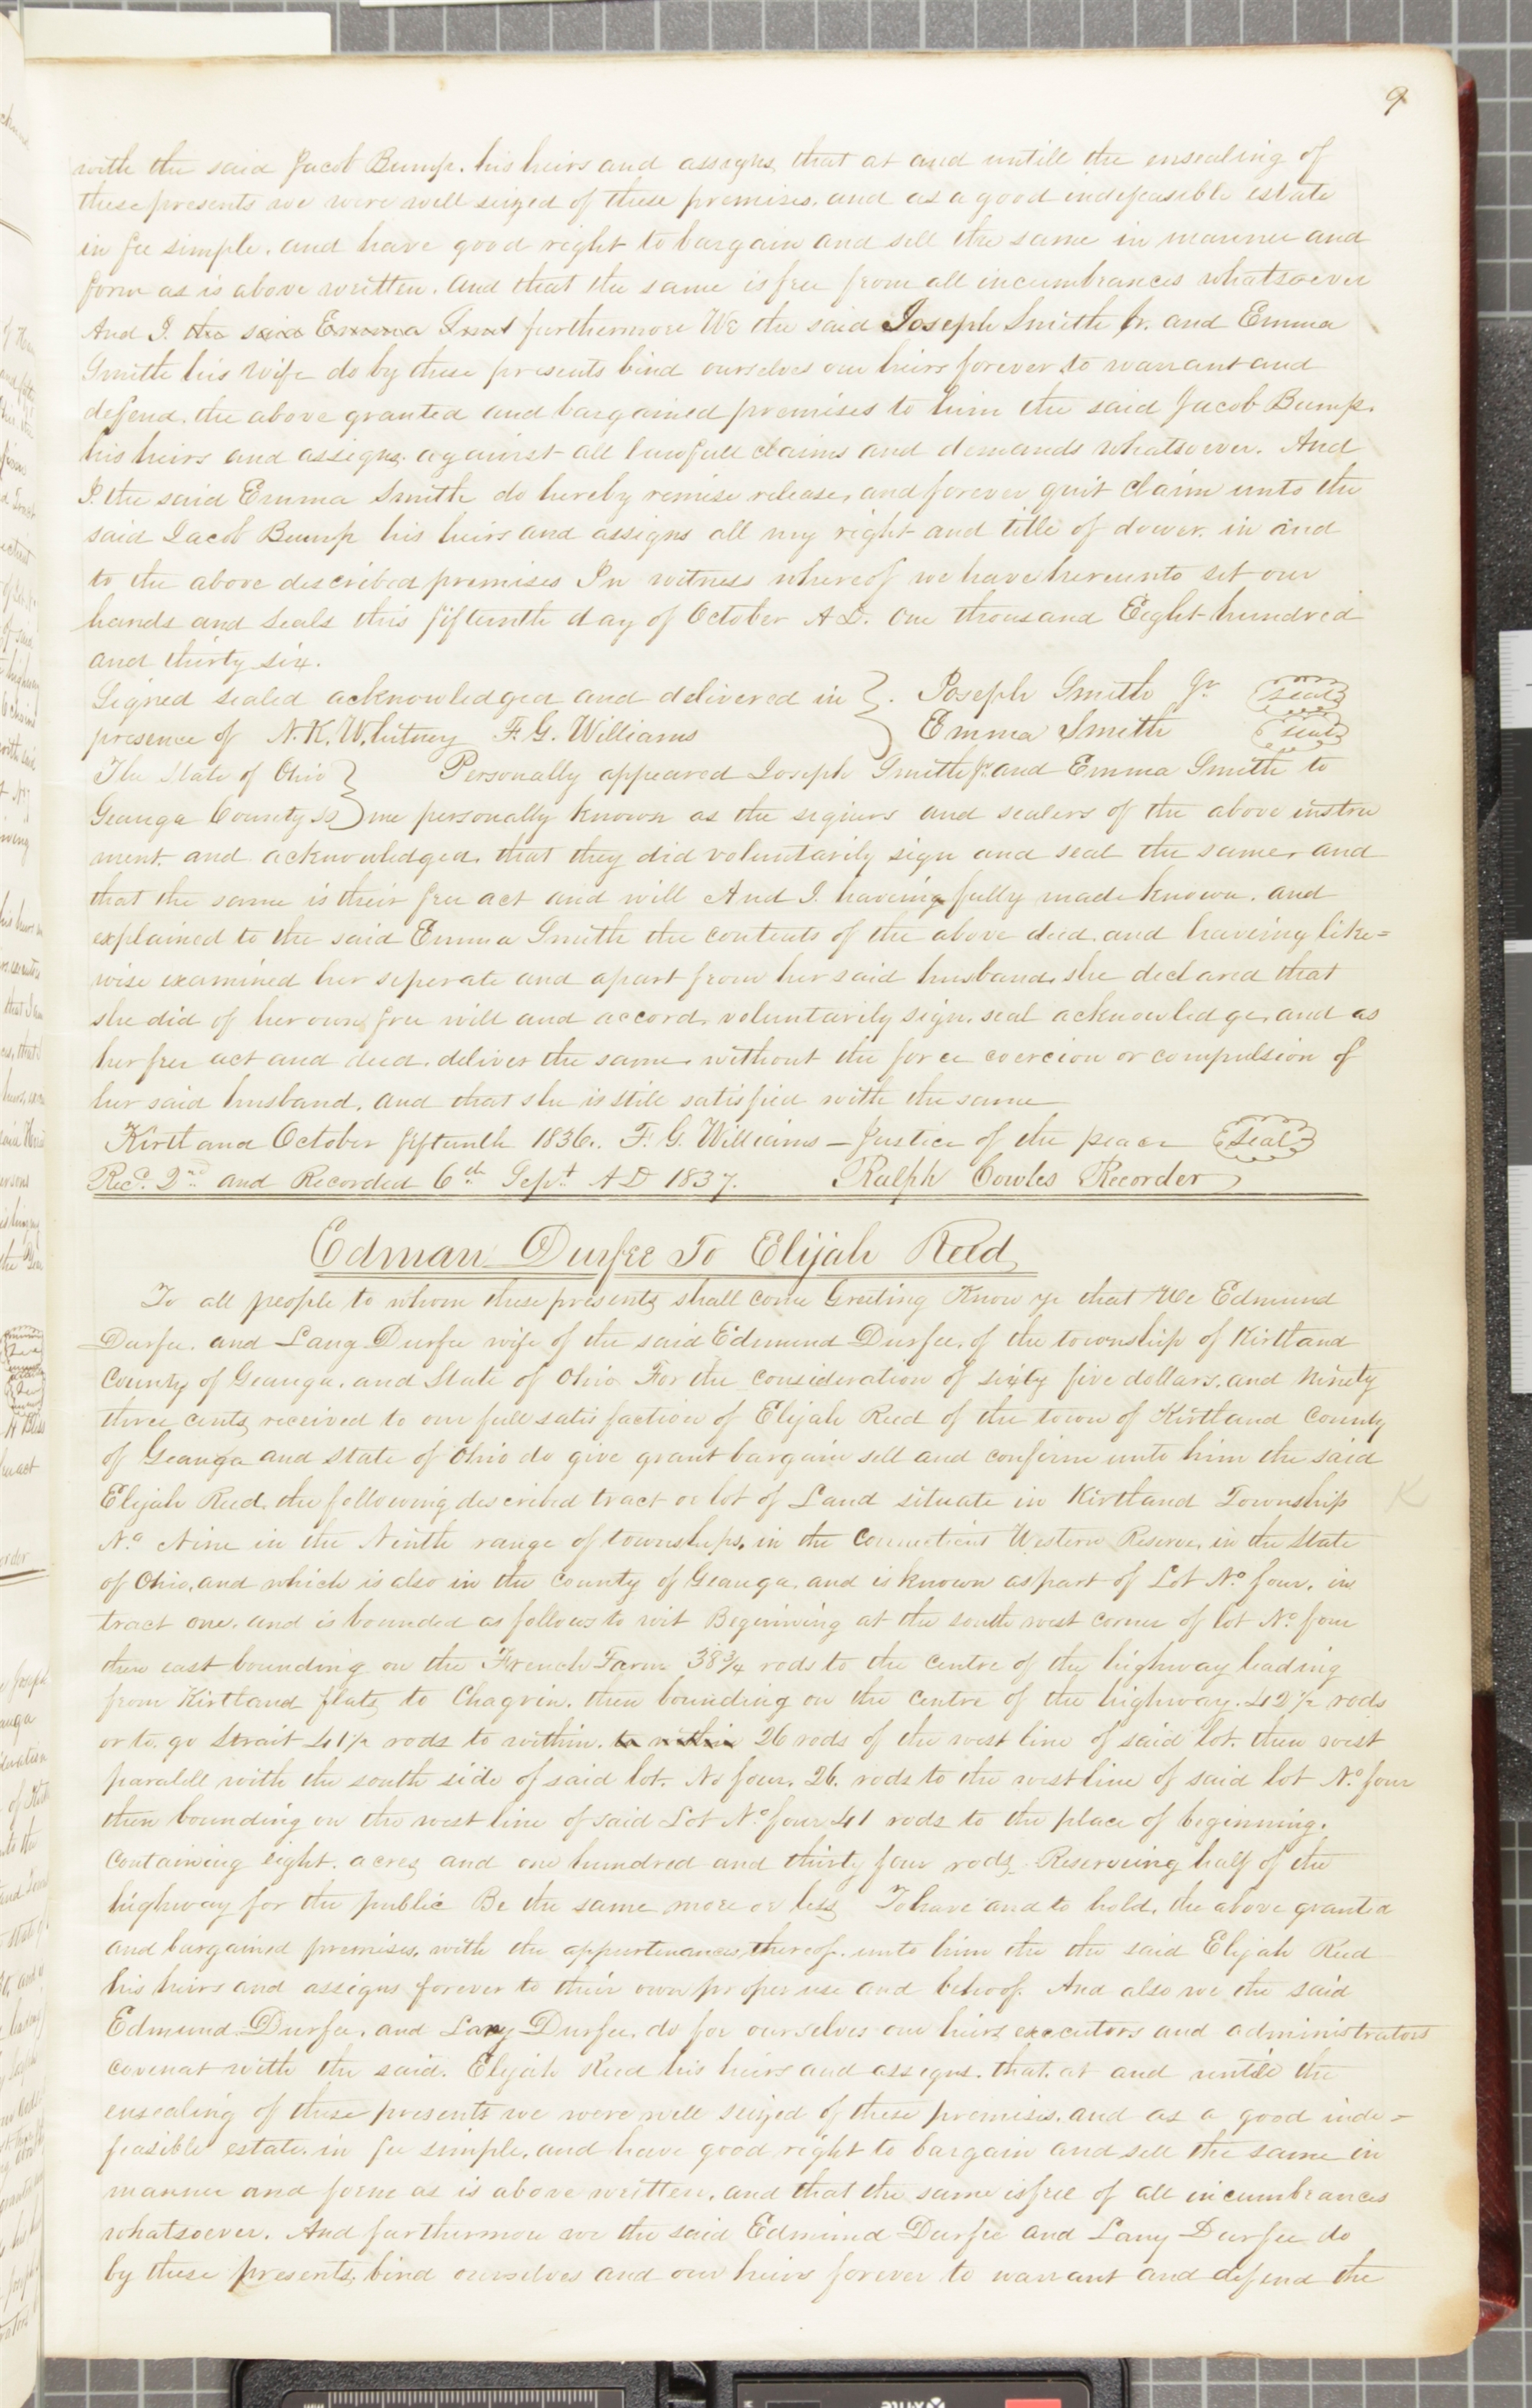 9
with the said Jacob Bump. his heirs and assigns, that at and untill the ensealing of
these presents we were well seized of these premises, and as a good indefeasible estate
in fee simple. and have good right to bargain and sell the same in manner and
form as is above written. and that the same is free from all incumbrances whatsoever
And I. the said Emma Smit furthermore We the said Joseph Smith Jr. and Emma
Smith his Wife do by these presents bind ourselves our heirs forever to warrant and
deffend, the above granted and bargained premises to him the said Jacob Bump.
his heirs and assigns. against all lawfull claims and demands whatsoever. And
I. the said Emma Smith do hereby remise release, and forever quit claim unto the
said Jacob Bump his heirs and assigns all my right and title of dower. in and
to the above described premises In witness whereof we have hereunto set our
hands and seals this fifteenth day of October A D. One thousand Eight hundred
and thirty six.
Signed sealed acknowledged and delivered in . Joseph Smith Jr seal
presence of N. K. Whitney F. G. Williams Emma Smith seal
The State of Ohio Personally appeared Joseph Smith Jr. and Emma Smith to
Geauga County ss me personally known as the signers and sealers of the above instru
ment. and acknowledged, that they did voluntarily sign and seal the same, and
that the same is their free act and will And I. having fully made known. and
explained to the said Emma Smith the contents of the above deed, and having like=
wise examined her seperate and apart from her said husband, she declared that
she did of her own free will and accord, voluntarily sign, seal acknowledge, and as
her free act and deed, deliver the same, without the force coercion or compulsion of
her said husband, and that she is still satisfied with the same
Kirtland October fifteenth 1836. F. G. Williams – Justice of the peace Seal
Recd. 2nd and Recorded 6th Sept AD 1837. Ralph Cowles Recorder
Edman Durfee To Elijah Reed
To all people to whom these presents shall come Greeting Know ye that We Edmund
Durfee. and Lany Durfee wife of the said Edmund Durfee, of the township of Kirtland
County of Geauga, and State of Ohio For the consideration of sixty five dollars, and ninety
three cents, received to our full satisfaction of Elijah Reed of the town of Kirtland County
of Geauga and State of Ohio do give grant bargain sell and confirm unto him the said
Elijah Reed, the following described tract or lot of Land situate in Kirtland Township
No. Nine in the Ninth range of townships, in the Connecticut Western Reserve, in the State
of Ohio, and which is also in the County of Geauga, and is known as part of Lot No. four, in
tract one, and is bounded as follows to wit Beginning at the south west corner of lot No. four
then east bounding on the French Farm 38 3/4 rods to the centre of the highway leading
from Kirtland flats to Chagrin. then bounding on the centre of the highway. 42 1/2 rods
or to go Strait 41 1/2 rods to within. to within 26 rods of the west line of said lot. then west
paralell with the south side of said lot. No four. 26. rods to the west line of said lot No. four
then bounding on the west line of said Lot No. four 41 rods to the place of beginning.
Containing eight. acres and one hundred and thirty four rods Reserveing half of the
highway for the public Be the same more or less To have and to hold, the above granted
and bargained premises, with the appurtenances thereof. unto him the the said Elijah Reed
his heirs and assigns forever to their own proper use and behoof. And also we the said
Edmund Durfee, and Lany Durfee, do for ourselves our heirs executors and administrators
covenat with the said. Elijah Reed his heirs and assigns. that. at and untill the
ensealing of these presents we were well seized of these premises, and as a good inde=
feasible estate. in fee simple, and have good right to bargain and sell the same in
manner and form as is above written, and that the same is free of all incumbrances
whatsoever. And furthermore we the said Edmund Durfee and Lany Durfee do
by these presents, bind ourselves and our heirs forever to warrant and defend the